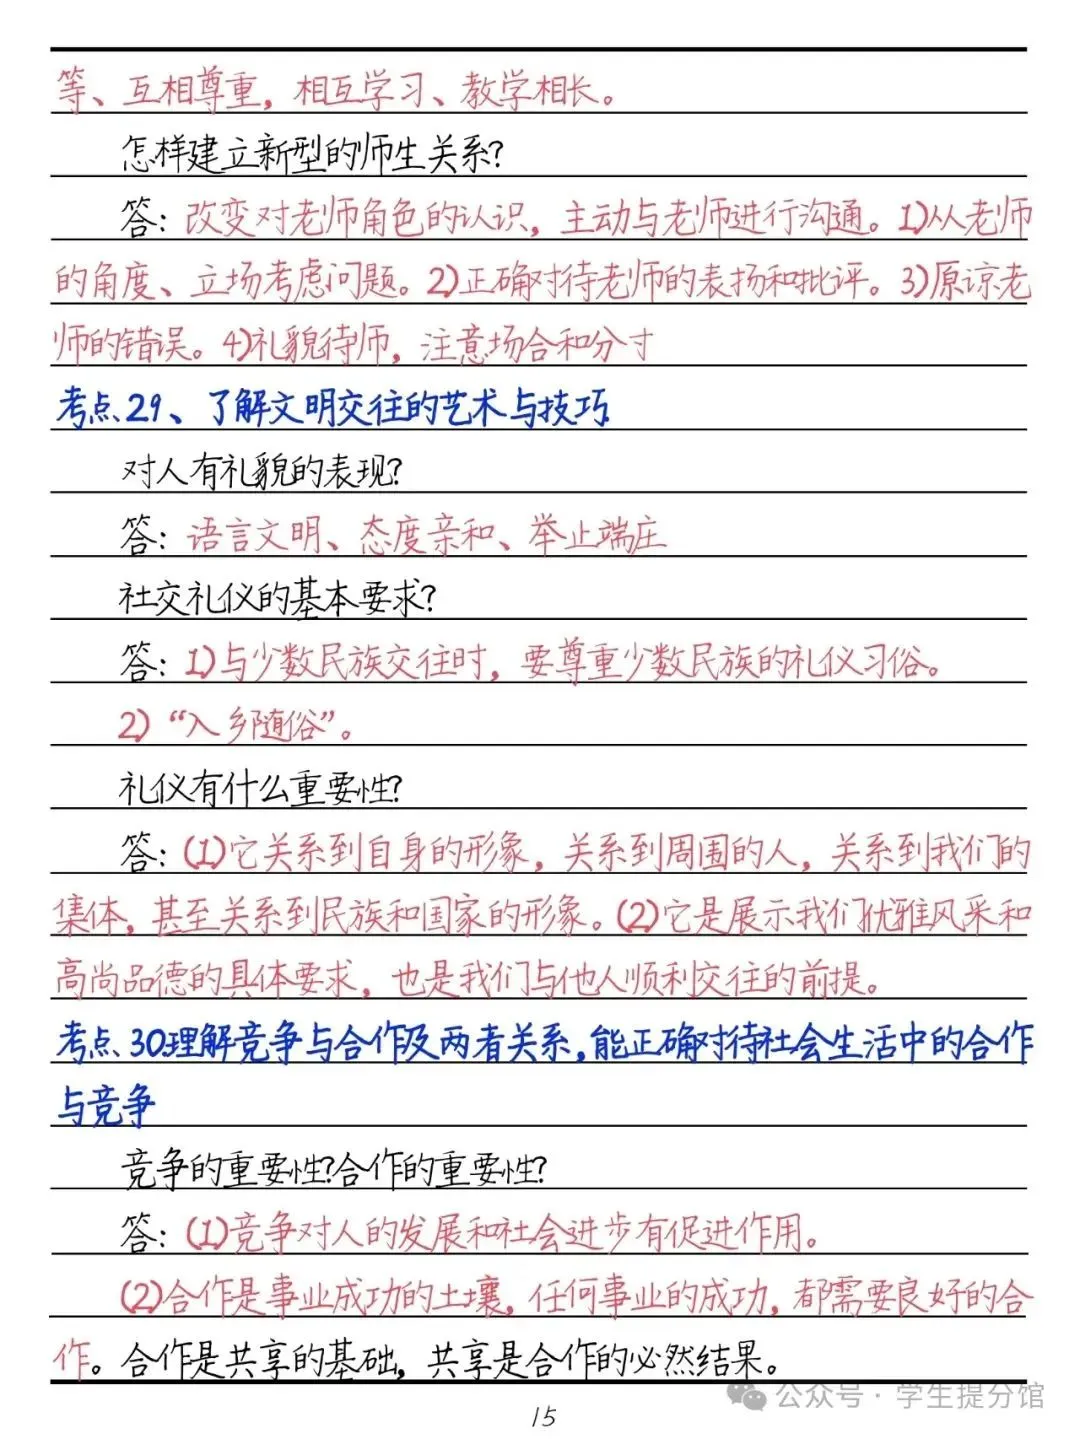 等、互相尊重，相互学习、教学相长。
怎样建立新型的师生关系?
答：改变对老师角色的认识，主动与老师进行沟通。1)从老师
的角度、立场考虑问题。2)正确对待老师的表扬和批评。3)原谅老
师的错误。4)礼貌待师，注意场合和分寸
考点29、了解文明交往的艺术与技巧
对人有礼貌的表现?
答：语言文明、态度亲和、举止端庄
社交礼仪的基本要求?
答：1)与少数民族交往时，要尊重少数民族的礼仪习俗。
2)“入乡随俗”。
礼仪有什么重要性?
答：(1)它关系到自身的形象，关系到周围的人，关系到我们的
集体，甚至关系到民族和国家的形象。(2)它是展示我们优雅风采和
高尚品德的具体要求，也是我们与他人顺利交往的前提。
考点30理解竞争与合作及两者关系，能正确对待社会生活中的合作
与竞争
竞争的重要性?合作的重要性?
答：(1)竞争对人的发展和社会进步有促进作用。
(2)合作是事业成功的土壤，任何事业的成功，都需要良好的合
作。合作是共享的基础，共享是合作的必然结果。
公众号·学生提分馆
15